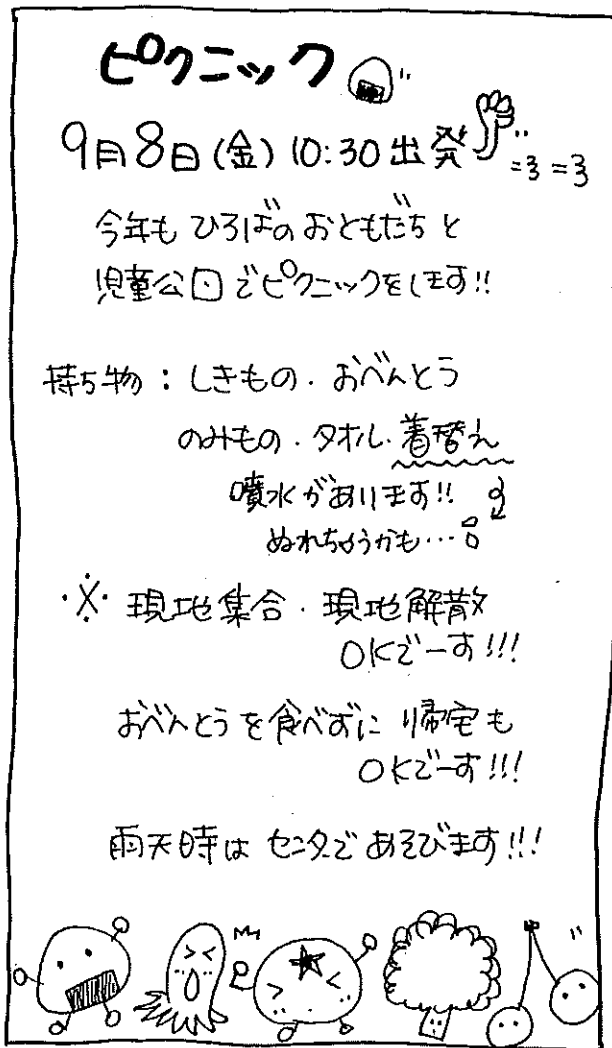 ピクニック
9月8日(金)10:30出発
今年もひろばのおともだちと
児童公囗でピクニックをします!!
持ち物:しきもの・おべんとう
のみもの・タオル・着替え
噴水があります!!
ぬれちゃうかも…
※ 現地集合・現地解散
OKでーす!!!
おべんとうを食べずに帰宅も
OKでーす!!!
雨天時はセンターであそびます!!!